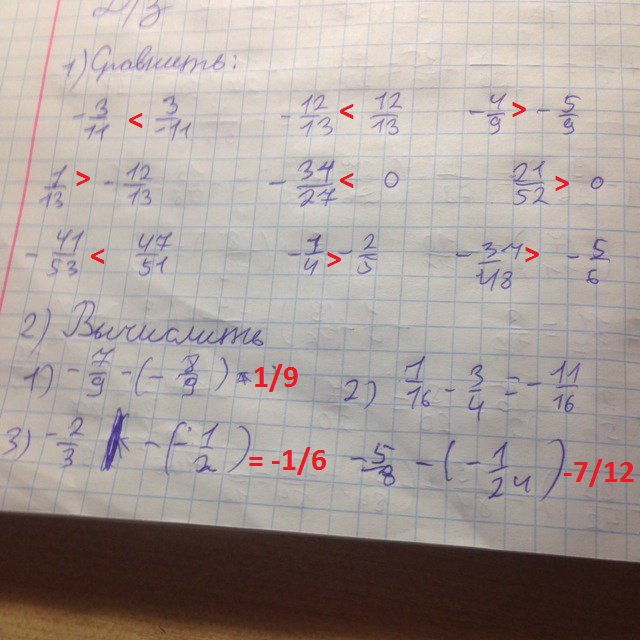 Д/З
1) Сравнить:
-3/11 < 3/-11 -12/13 < 12/13 -4/9 > -5/9
1/13 > -12/13 -34/27 < 0 21/52 > 0
-41/53 < 47/51 -1/4 > -2/5 -5/6
2) Вычислить
1) -7/9 -(-8/9) = 1/9 2) 1/16 - 3/4 = -11/16
3) -2/3 -(-1/2) = -1/6 -5/8 -(-1/24) -7/12